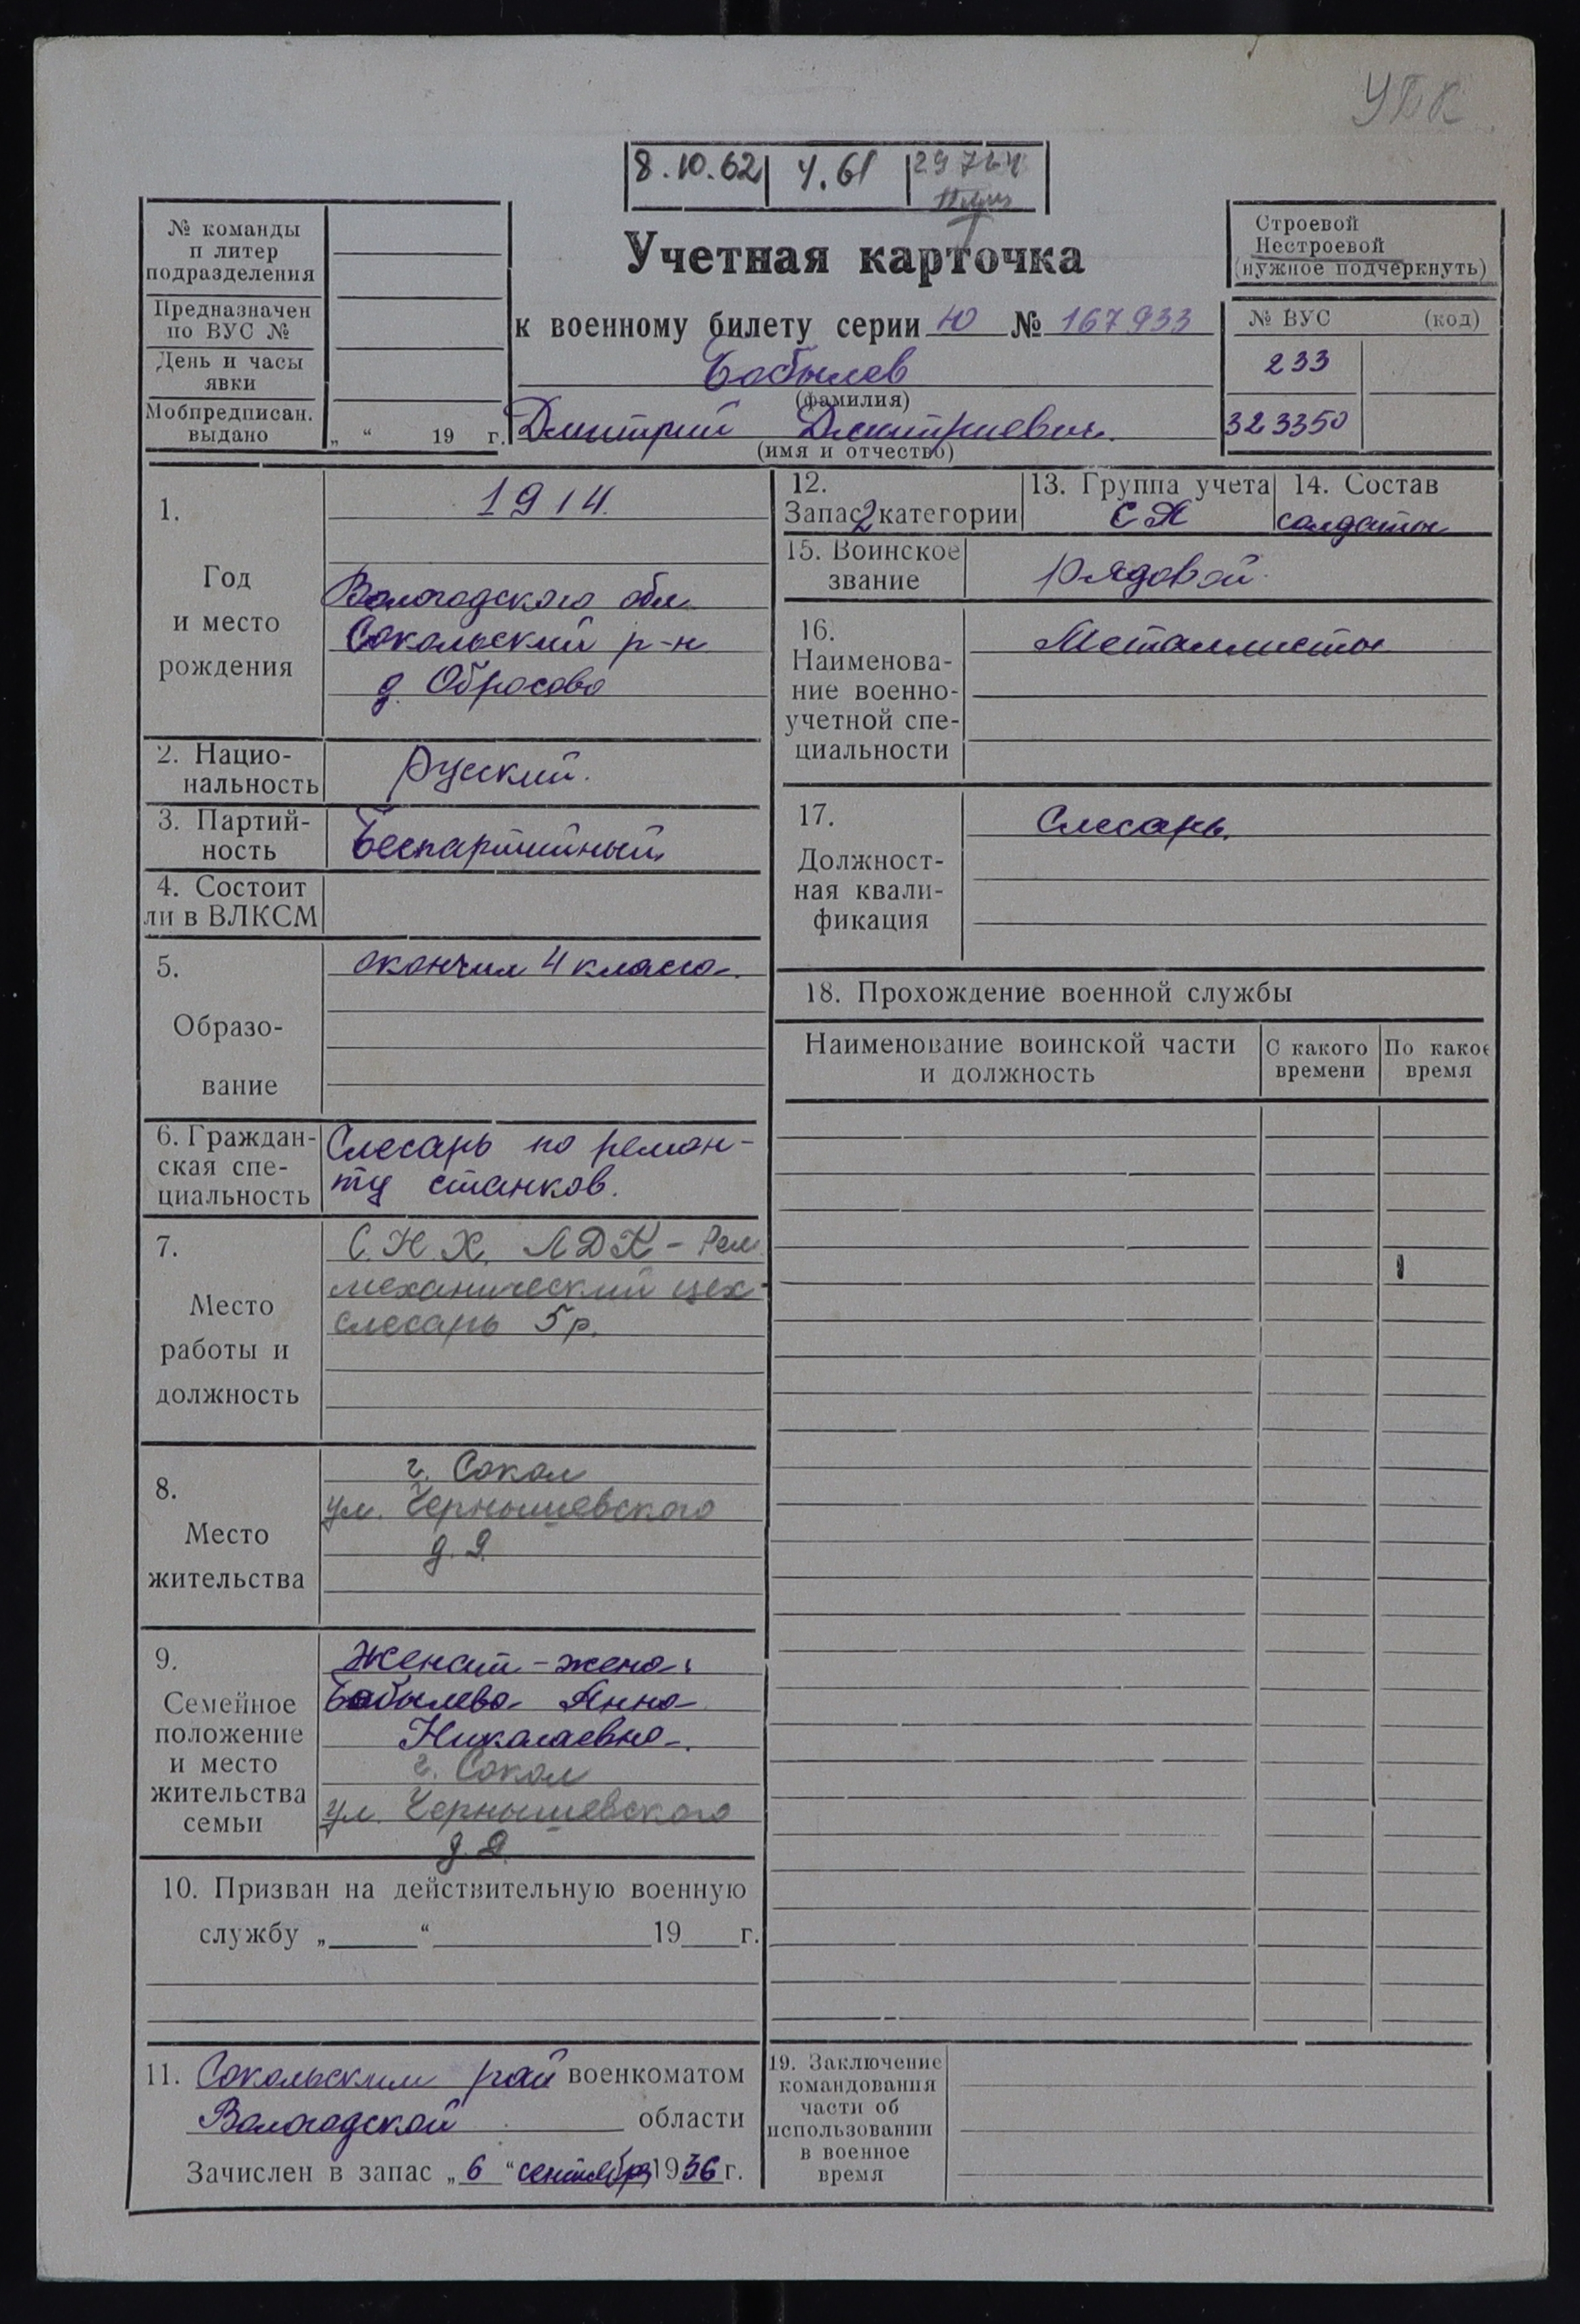 УПК
8.10.62 4.61 29764
№ команды
п литер
подразделения
Предназначен
по ВУС №
День и часы
явки
Мобпредписан.
выдано
„ “ 19 г.
Учетная карточка
к военному билету серии Ю № 167933
Бобылев
(фамилия)
Дмитрий Дмитриевич.
(имя и отчество)
Строевой
Нестроевой
(нужное подчеркнуть)
№ ВУС (код)
233
323350
1.
Год
и место
рождения
1914.
Вологодского обл.
Сокольский р-н
д. Обросово
2. Нацио-
нальность
Русский.
3. Партий-
ность
Беспартийный
4. Состоит
ли в ВЛКСМ
5.
Образо-
вание
окончил 4 класса.
6. Граждан-
ская спе-
циальность
Слесарь по ремон-
ту станков.
7.
Место
работы и
должность
С.Н.Х. ЛДК - Рем.
механический цех
слесарь 5р.
8.
Место
жительства
г. Сокол
ул. Чернышевского
д.
9.
Семейное
положение
и место
жительства
семьи
Женат - жена:
Бобылева Анна
Николаевна.
г. Сокол
ул. Чернышевского
д.
10. Призван на действительную военную
службу „ “ 19 г.
11. Сокольским рай военкоматом
Вологодской области
Зачислен в запас „6“ сентября 1936 г.
12.
Запас 2 категории
13. Группа учета
СА
14. Состав
солдаты
15. Воинское
звание
рядовой.
16.
Наименова-
ние военно-
учетной спе-
циальности
Металлисты
17.
Должност-
ная квали-
фикация
Слесарь.
18. Прохождение военной службы
Наименование воинской части
и должность
С какого
времени
По какое
время
19. Заключение
командования
части об
использовании
в военное
время